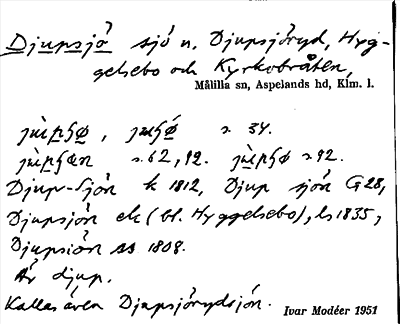 Djupsjö sjö n. Djupsjöryd, Hyg-
gelsebo och Kyrkobråten,
Målilla sn, Aspelands hd, Klm. l.
s. 34.
s. 62, 92. s. 92.
Djup-Sjön k 1812, Djup sjön G28,
Djupsjön ek (bl. Hyggelsebo), ls 1835,
Djupsiön ss 1808.
Är djup.
Kallas även Djupsjörydsjön.
Ivar Modéer 1951